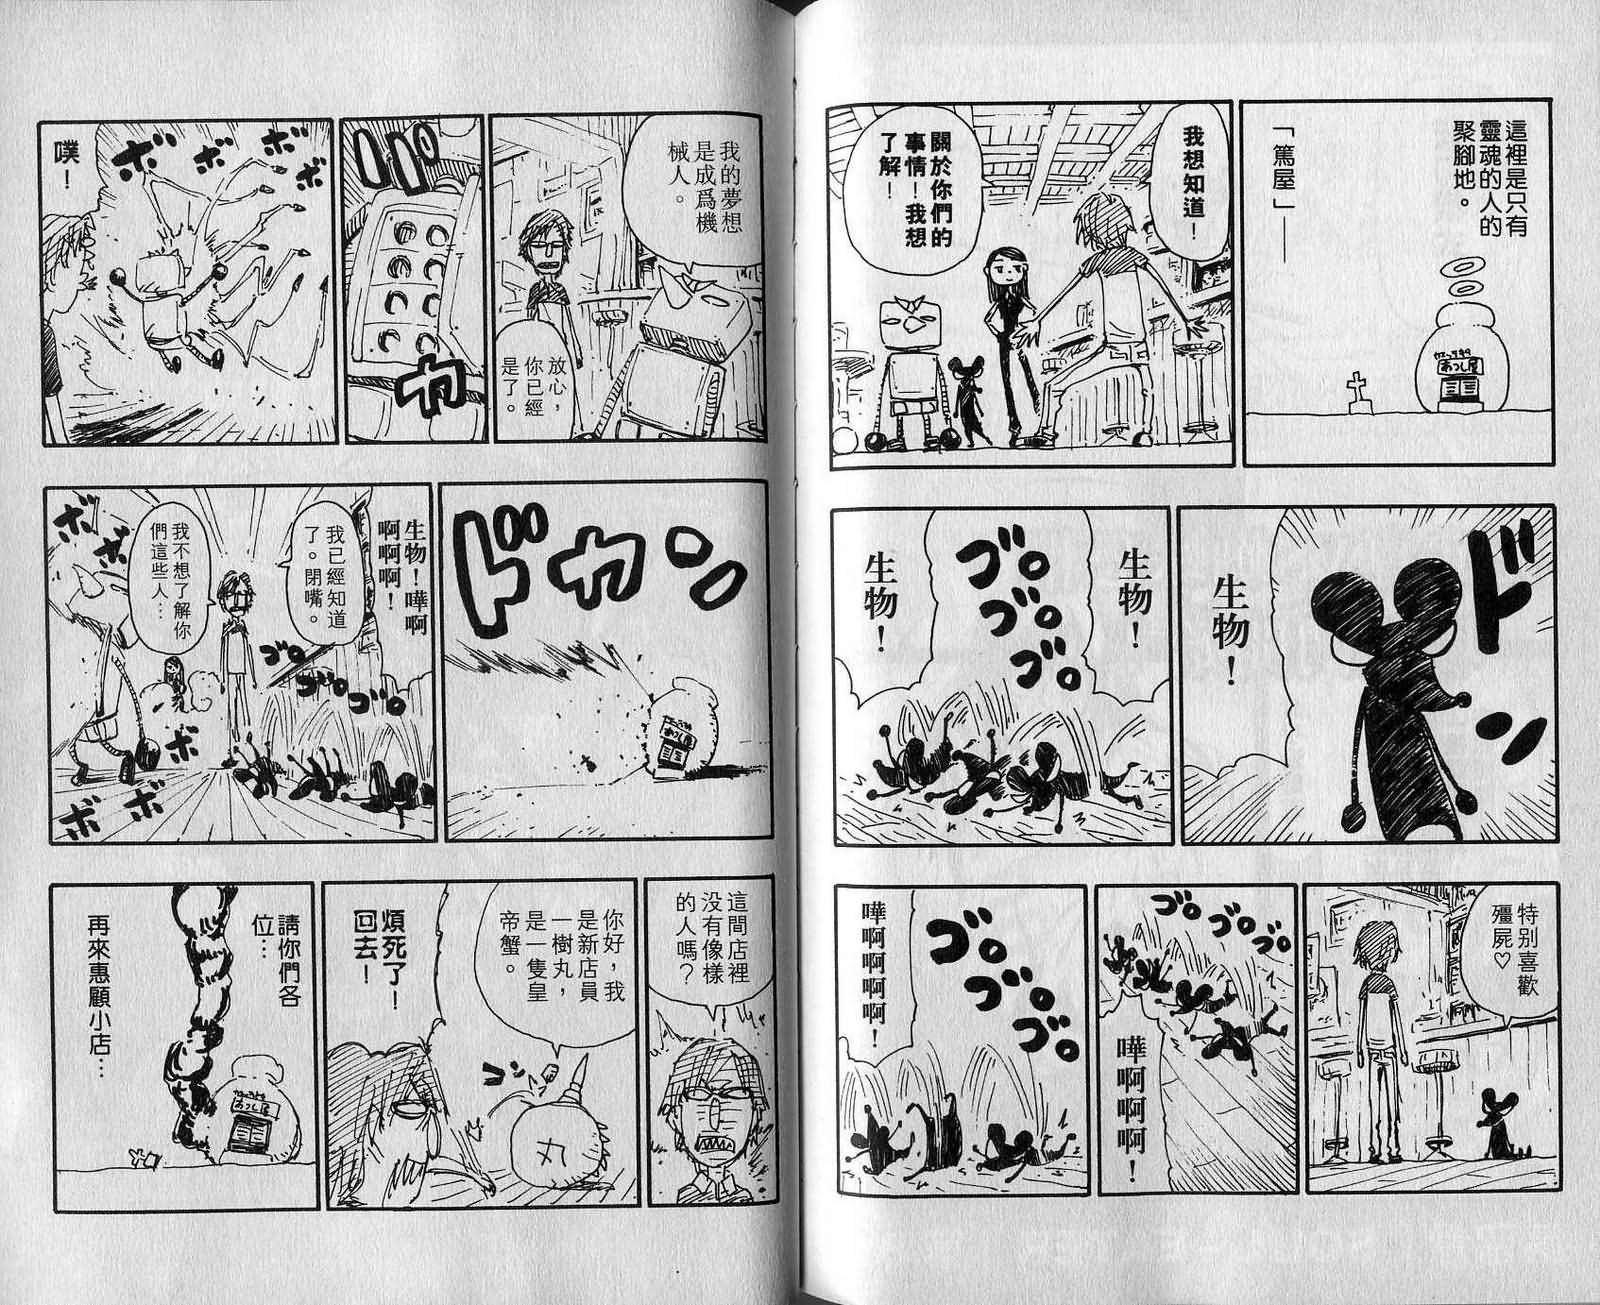 這裡是只有
靈魂的人的
聚腳地。
「篤屋」——
あつし屋
我想知道！
關於你們的
事情！我想
了解！
ドン
生物！
生物！
ゴロ
ゴロ
ゴロ
生物！
特別喜歡
殭屍♡
ゴロ
ゴロ
ゴロ
嘩啊啊啊！
ゴロ
ゴロ
ゴロ
嘩啊啊啊啊！
我的夢想
是成爲機
械人。
放心，
你已經
是了。
パカ
ボ
ボ
ボ
ボ
噗！
ドカン
あつし屋
生物！嘩啊
啊啊啊！
我已經知道
了。閉嘴。
我不想了解你
們這些人…
ボ
ボ
ゴロ
ゴロ
ゴロ
ボ
ボ
ボ
這間店裡
没有像樣
的人嗎？
你好，我
是新店員
一樹丸，
是一隻皇
帝蟹。
コン
丸
煩死了！
回去！
請你們各
位…
再來惠顧小店…
あつし屋